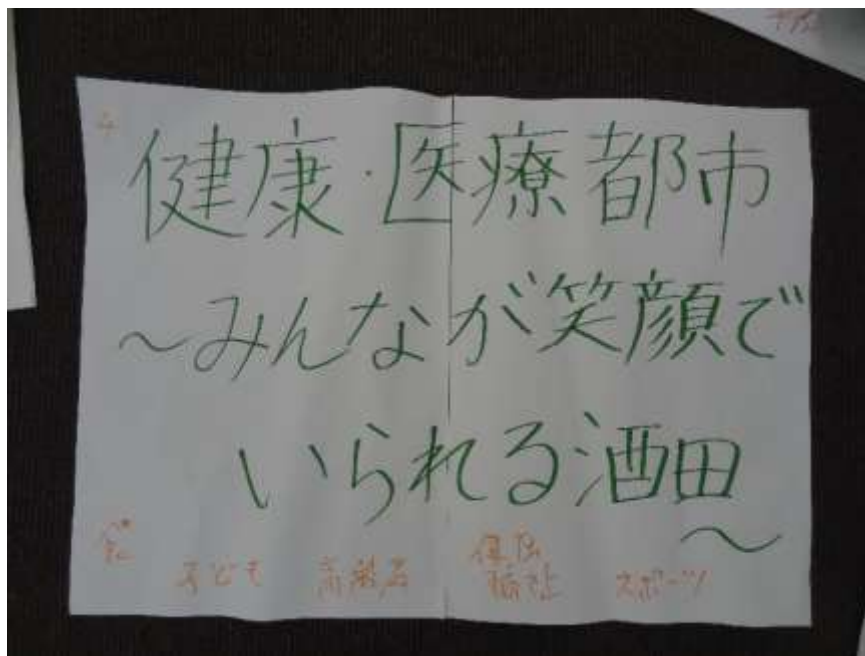 4
健康・医療都市
〜みんなが笑顔で
いられる酒田〜
子ども 高齢者 保健福祉 スポーツ